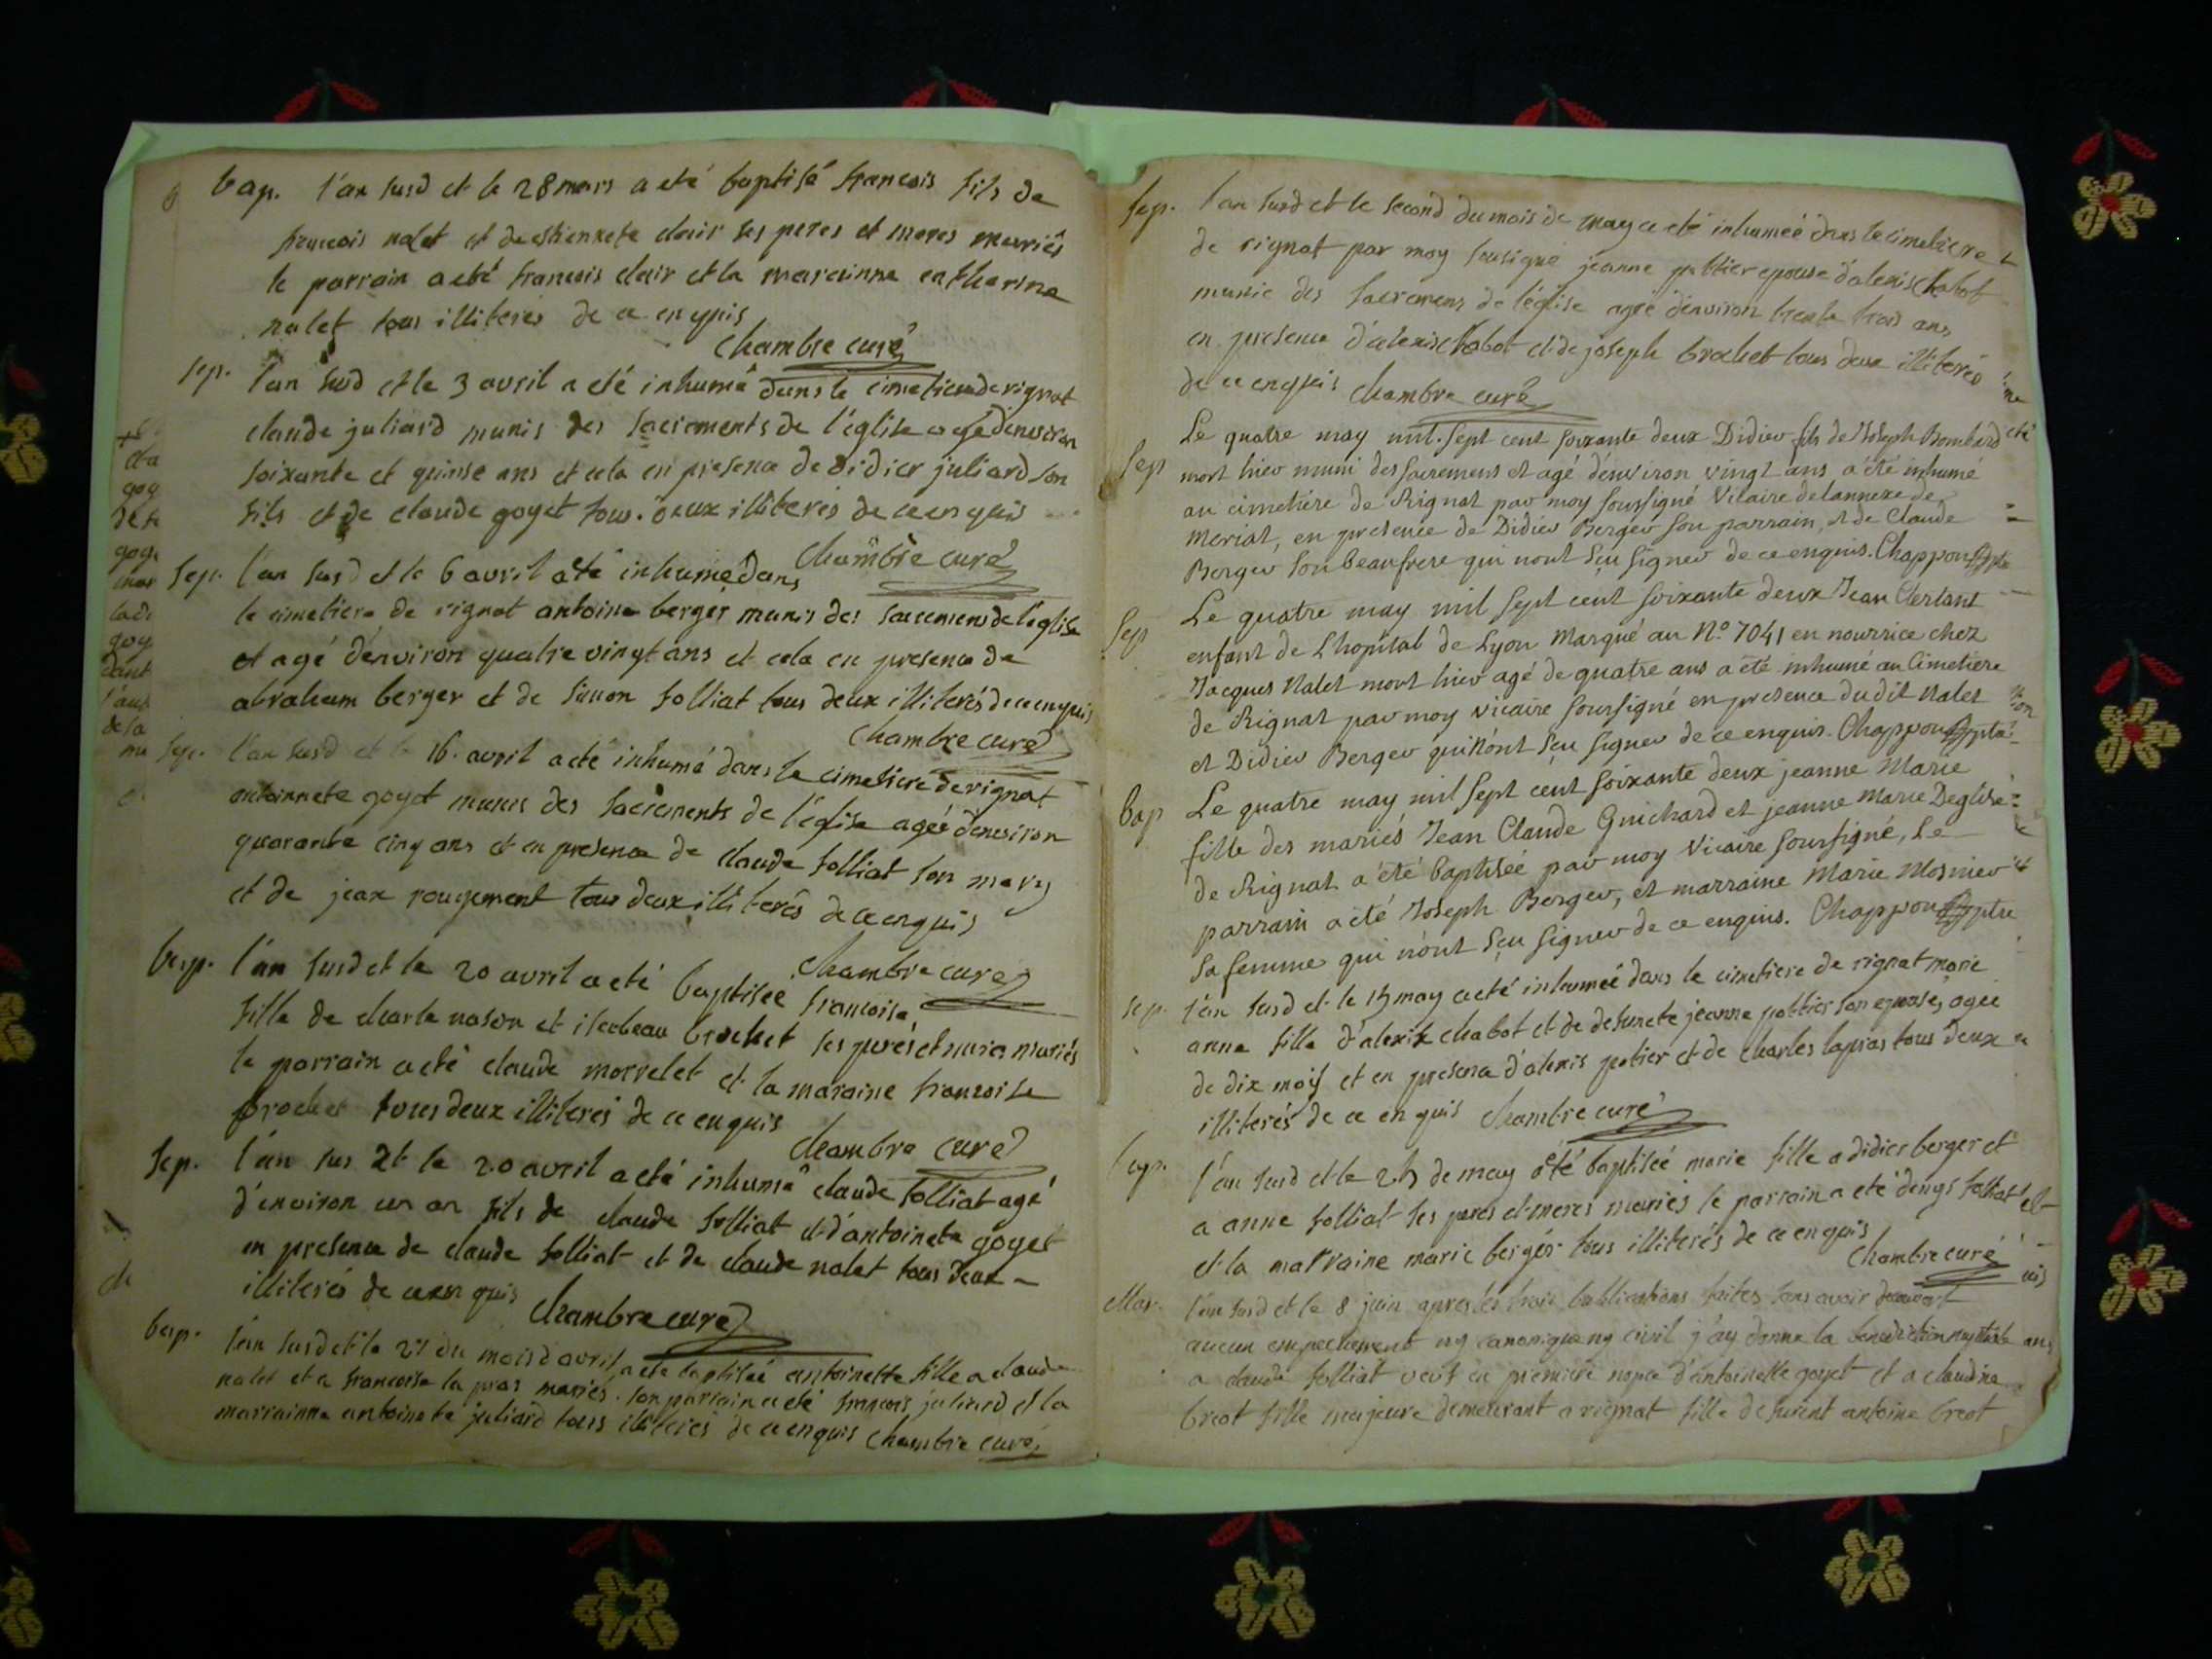 bap. l'an susd et le 28 mars a eté baptisé francois fils de
francois nalet et de estiennete clair ses peres et meres mariés
le parrain a eté francois clair et la marainne catherine
nalet tous illiterés de ce enquis
chambre curé
sep. l'an susd et le 3 avril a eté inhumé dans le cimetiere de rignat
claude juliard munis des sacrements de l'église agé d'environ
soixante et quinse ans et cela en presence de didier juliard son
fils et de claude goyet tous deux illiterés de ce enquis
chambre curé
sep. l'an susd et le 6 avril a eté inhumé dans
le cimetiere de rignat antoine berger munis des sacremens de l'église
et agé d'environ quatre vingt ans et cela en presence de
abraham berger et de simon folliat tous deux illiterés de ce enquis
chambre curé
sep. l'an susd et le 16 avril a eté inhumé dans le cimetiere de rignat
antoinnete goyet munis des sacrements de l'église ageé d'environ
quarante cinq ans et en presence de claude folliat son mary
et de jean rougemont tous deux illiterés de ce enquis
chambre curé
bap. l'an susd et le 20 avril a eté baptiseé francoise
fille de charle nason et isabeau brochet ses peres et meres mariés
le parrain a eté claude morrelet et la maraine francoise
brochet tous deux illiterés de ce enquis
chambre curé
sep. l'an sus et le 20 avril a eté inhumé claude folliat agé
d'environ un an fils de claude folliat et d'antoinete goyet
en presence de claude folliat et de claude nalet tous deux
illiterés de ce en quis chambre curé
bap. l'an susd et le 27 du mois d'avril a eté baptiseé antoinette fille a claude
nalet et a francoise la pras mariés. son parrain a eté francois juliard et la
marrainne antoinete juliard tous illiterés de ce enquis chambre curé
sep. l'an susd et le second du mois de may a eté inhumeé dans le cimetiere
de rignat par moy sousigné jeanne pottier epouse d'alexis chabot
munie des sacremens de l'église ageé d'environ trente trois ans
en presence d'alexis chabot et de joseph brochet tous deux illiterés
de ce enquis chambre curé
Le quatre may mil sept cent soixante deux Didier fils de Joseph Bombard
sep mort hier muni des sacremens et agé d'environ vingt ans a été inhumé
au cimetière de Rignat par moy soussigné Vicaire de l'annexe de
Meriat, en presence de Didier Berger son parrain, et de Claude
Berger son beaufrere qui n'ont sçu signer de ce enquis. Chappon ptre
Le quatre may mil sept cent soixante deux Jean Clertant
sep enfant de L'hopital de Lyon Marqué au N.º 7041 en nourrice chez
Jacques Nalet mort hier agé de quatre ans a été inhumé au Cimetiere
de Rignat par moy vicaire soussigné en presence dudit Nalet
et Didier Berger qui n'ont sçu signer de ce enquis. Chappon ptre
bap Le quatre may mil sept cent soixante deux jeanne Marie
fille des mariés Jean Claude Guichard et jeanne Marie Deglise
de Rignat a été baptisée par moy Vicaire soussigné, Le
parrain a été Joseph Berger, et marraine Marie Mosnier
sa femme qui n'ont sçu signer de ce enquis. Chappon ptre
sep. l'an susd et le 15 may a eté inhumeé dans le cimetiere de rignat marie
anne fille d'alexix chabot et de defuncte jeanne pottier son epouse, ageé
de dix mois et en presence d'alexis potier et de charles lapras tous deux
illiterés de ce en quis chambre curé
bap. l'an susd et le 25 de may a eté baptiseé marie fille a didier berger et
a anne folliat ses peres et meres mariés le parrain a eté denys folliat
et la marraine marie berger tous illiterés de ce enquis
chambre curé
Mar. l'an susd et le 8 juin apres les trois publications faites sans avoir decouvert
aucun empechement ny canonique ny civil j'ay donné la benediction nuptiale
a claude folliat veuf en premiere nopce d'antoinette goyet et a claudine
breat fille majeure demeurant a rignat fille de furent antoine breat